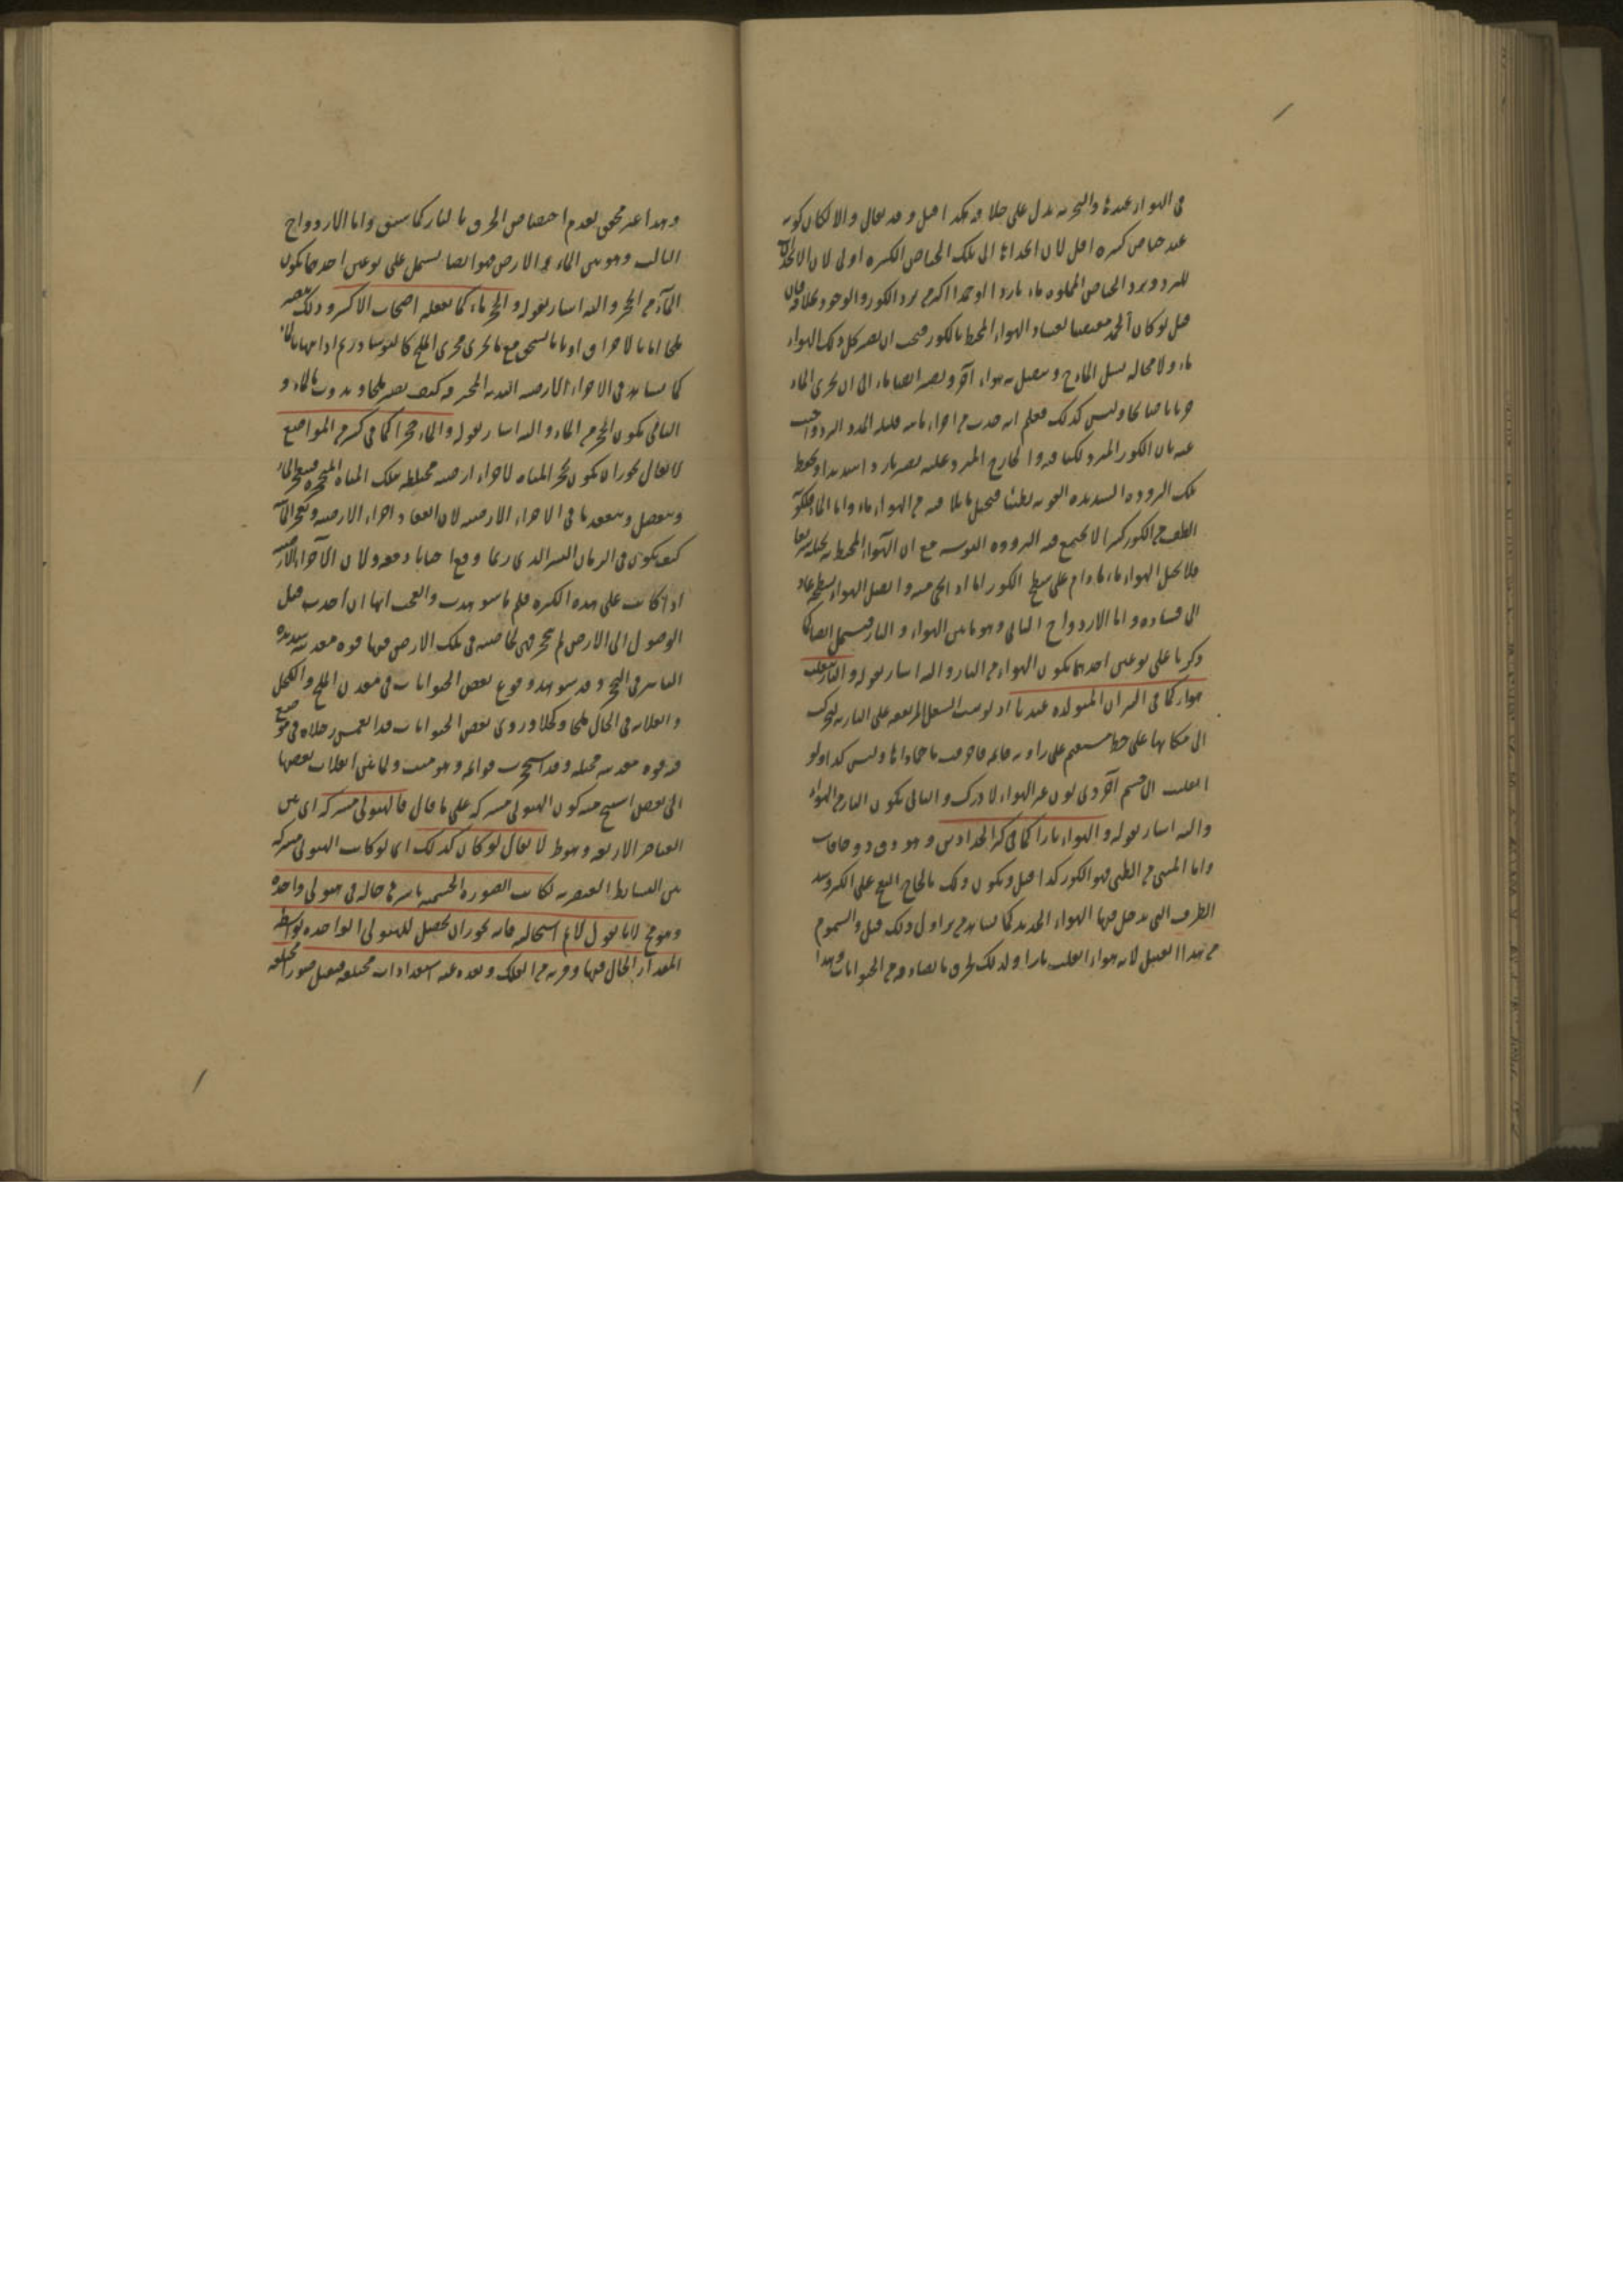 في الهواء عندنا والتجربة تدل على خلافه هكذا قيل وقد يقال والا لكان كونه
عند حياض كبيرة اقل لان انجذابها الى تلك الحياض الكبيرة اولى لان الانجذاب
للبرد وبرد الحياض المملوءة ماء باردا او جمدا اكثر من برد الكوز والوجود بخلافه فان
قيل لو كان الجمد مقتضيا لفساد الهواء المحيط بالكوز فيجب ان يصير كل ذلك الهواء
ماء ولا محالة يسيل الماء ح ويتصل به هواء آخر ويصير ايضا ماء الى ان يجري الماء
جريانا صالحا وليس كذلك فعلم انه حدث من اجزاء مائية قليلة المدد البرد واجيب
عنه بان الكوز المبرد لكثافة والخارج المبرد عليه يصير باردا شديدا ويحفظ
تلك البرودة الشديدة القوية لطيفا فيحيل ما يلاقيه من الهواء ماء واما الماء
اللطف من الكوز كثيرا لا يجتمع فيه البرودة القوية مع ان الهواء المحيط به يحيله سريعا
فلا يحيل الهواء ماء ما دام على سطح الكوز اما اذا نحي عنه واتصل الهواء بسطحه عاد
الى فساده واما الازدواج الثاني وهو ما بين الهواء والنار فيشتمل ايضا كما
ذكرنا على نوعين احدهما تكون الهواء من النار واليه اشار بقوله والنار تنقلب
هواء كما في النيران المتولدة عندنا اذ لو بقيت الشعل المرتفعة على النارية لتحركت
الى مكانها على خط مستقيم على زاوية قائمة فاحرقت ما حاذاها وليس كذا ولو
انقلبت الى قسم آخر ذي لون غير الهواء لادرك والثاني تكون النار من الهواء
واليه اشار بقوله والهواء نارا كما في كير الحدادين وهو زق ذو حافات
واما المبني من الطين فهو الكور كذا قيل ويكون ذلك بالحاح النفخ على الكير وسد
الطرق التي يدخل فيها الهواء الجديد كما يشاهد من يزاول ذلك قيل والسموم
من هذا القبيل لانه هواء انقلب نارا ولذلك يحرق ما يصادفه من الحيوانات وهذا
وهذا غير محقق لعدم اختصاص الحرق بالنار كما سبق واما الازدواج
الثالث وهو بين الماء والارض فهو ايضا يشتمل على نوعين احدهما تكون
الماء من الحجر واليه اشار بقوله والحجر ماء كما يفعله اصحاب الاكسير وذلك بتصييره
ملحا اما بالاحراق او بالسحق مع ما يجري مجرى الملح كالنوشادر ثم اذابتها بالماء
كما يشاهد في الاجزاء الارضية الندية المحترقة كيف يصير ملحا ويذوب بالماء و
الثاني تكون الحجر من الماء واليه اشار بقوله والماء حجرا كما في كثير من المواضع
لا يقال يجوز ان يكون تحجر المياه لاجزاء ارضية مختلطة بتلك المياه المتحجرة
وينفصل وينعقد ما في الاجزاء الارضية لان انعقاد اجزاء الارضية وتحجر الماء
كيف يكون في الزمان اليسير الذي ربما وقع احيانا دفعة ولان الاجزاء الارضية
اذا كانت على هذه الكثرة فلم ما شوهدت والعجب انها ان اخذت قبل
الوصول الى الارض لم تتحجر فهي لخاصية في تلك الارض فيها قوة معدنية شديدة
التاثير في التحجر وقد شوهد وقوع بعض الحيوانات في معدن الملح والكحل
وانقلابه في الحال ملحا وكحلا وروى بعض الحيوانات قد انغمس رجلاه في موضع
فيه قوة معدنية محيلة وقد استحجرت قوائمه وهو ميت ولما بين انقلاب بعضها
الى بعض استنتج منه كون الهيولى مشتركة على ما قال فالهيولى مشتركة اي بين
العناصر الاربعة وهو ظ لا يقال لو كان كذلك اي لو كانت الهيولى مشتركة
بين البسائط العنصرية لكانت الصورة الجسمية باسرها حالة في هيولى واحدة
وهو مح لانا نقول لا نم استحالته فانه يجوز ان يحصل للهيولى الواحدة بواسطة
المقدار الحال فيها وقربه من الفلك وبعده عنه استعدادات مختلفة فيقبل صورا مختلفة